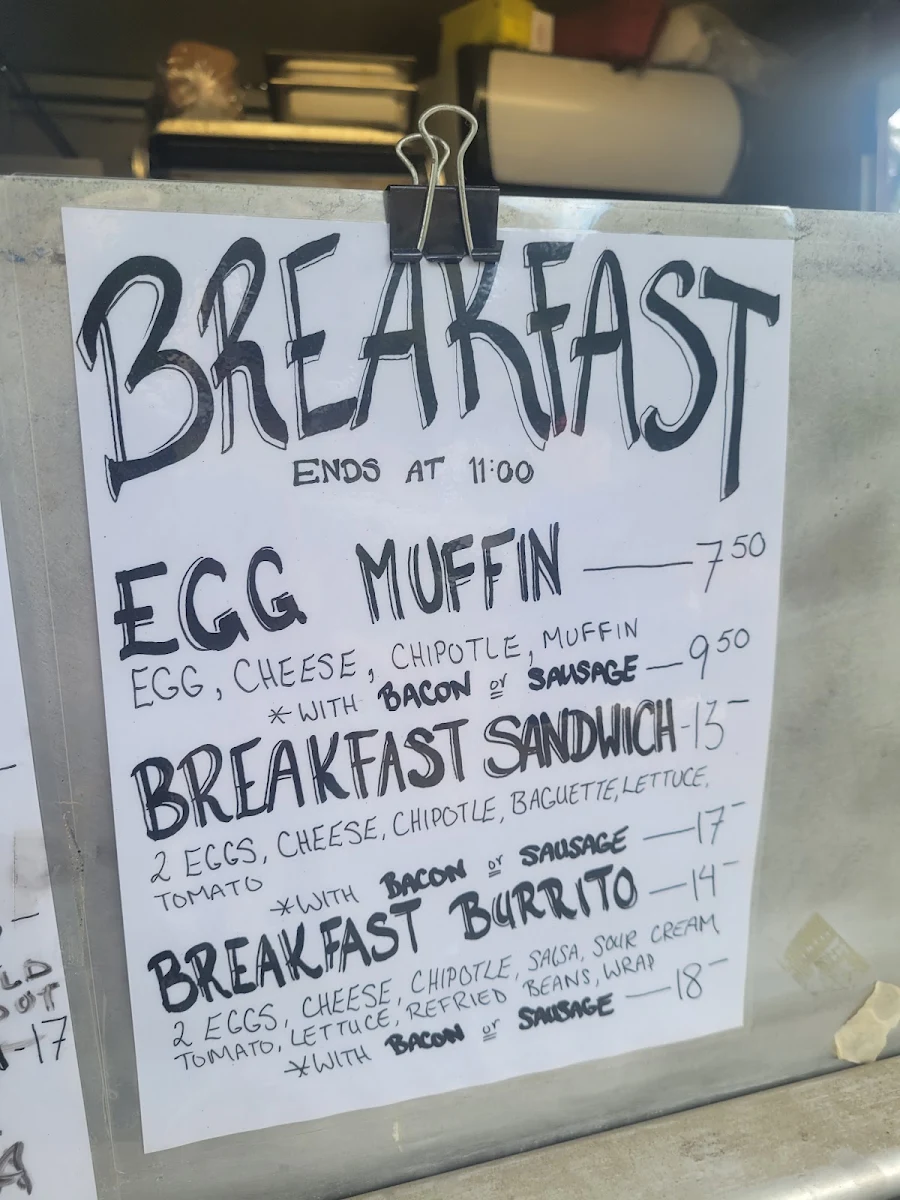 BREAKFAST
ENDS AT 11:00
EGG MUFFIN — 7 50
EGG, CHEESE, CHIPOTLE, MUFFIN
*WITH BACON or SAUSAGE — 9 50
BREAKFAST SANDWICH - 13 -
2 EGGS, CHEESE, CHIPOTLE, BAGUETTE, LETTUCE,
TOMATO
*WITH BACON or SAUSAGE — 17 -
BREAKFAST BURRITO — 14 -
2 EGGS, CHEESE, CHIPOTLE, SALSA, SOUR CREAM
TOMATO, LETTUCE, REFRIED BEANS, WRAP
*WITH BACON or SAUSAGE — 18 -
LD
OUT
-17